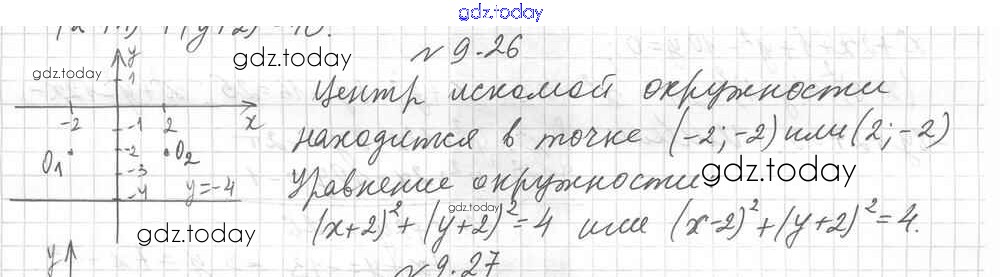 gdz.today
(x+1)² + (y+2)² = 10.
№ 9.26
y
1
gdz.today
gdz.today
Центр искомой окружности
-2
2
x
gdz.today
-1
находится в точке (-2; -2) или (2; -2)
O₁
-2
O₂
-3
Уравнение окружности
gdz.today
-4
y=-4
gdz.today
(x+2)² + (y+2)² = 4 или (x-2)² + (y+2)² = 4.
gdz.today
y
№ 9.27